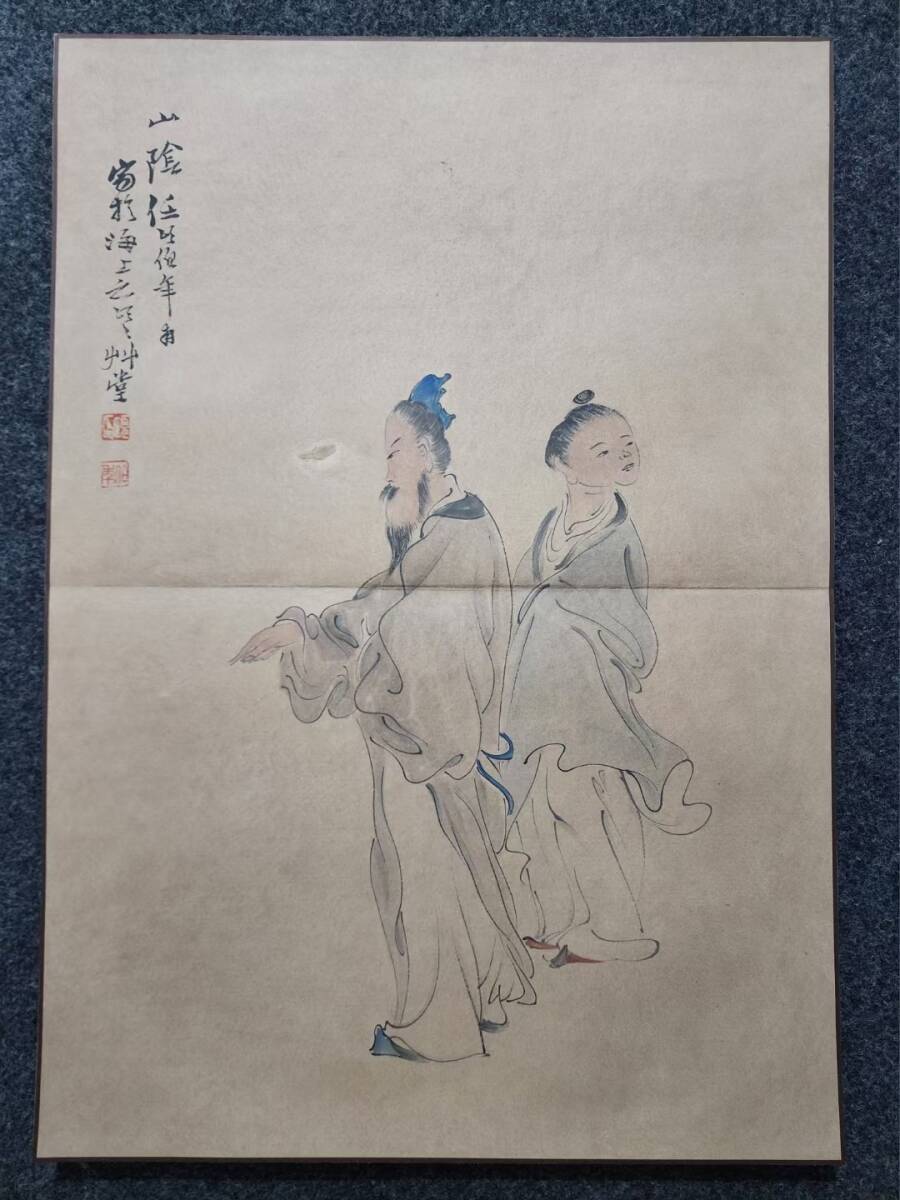 山陰任頤伯年甫
寫於海上之頤〻艸堂